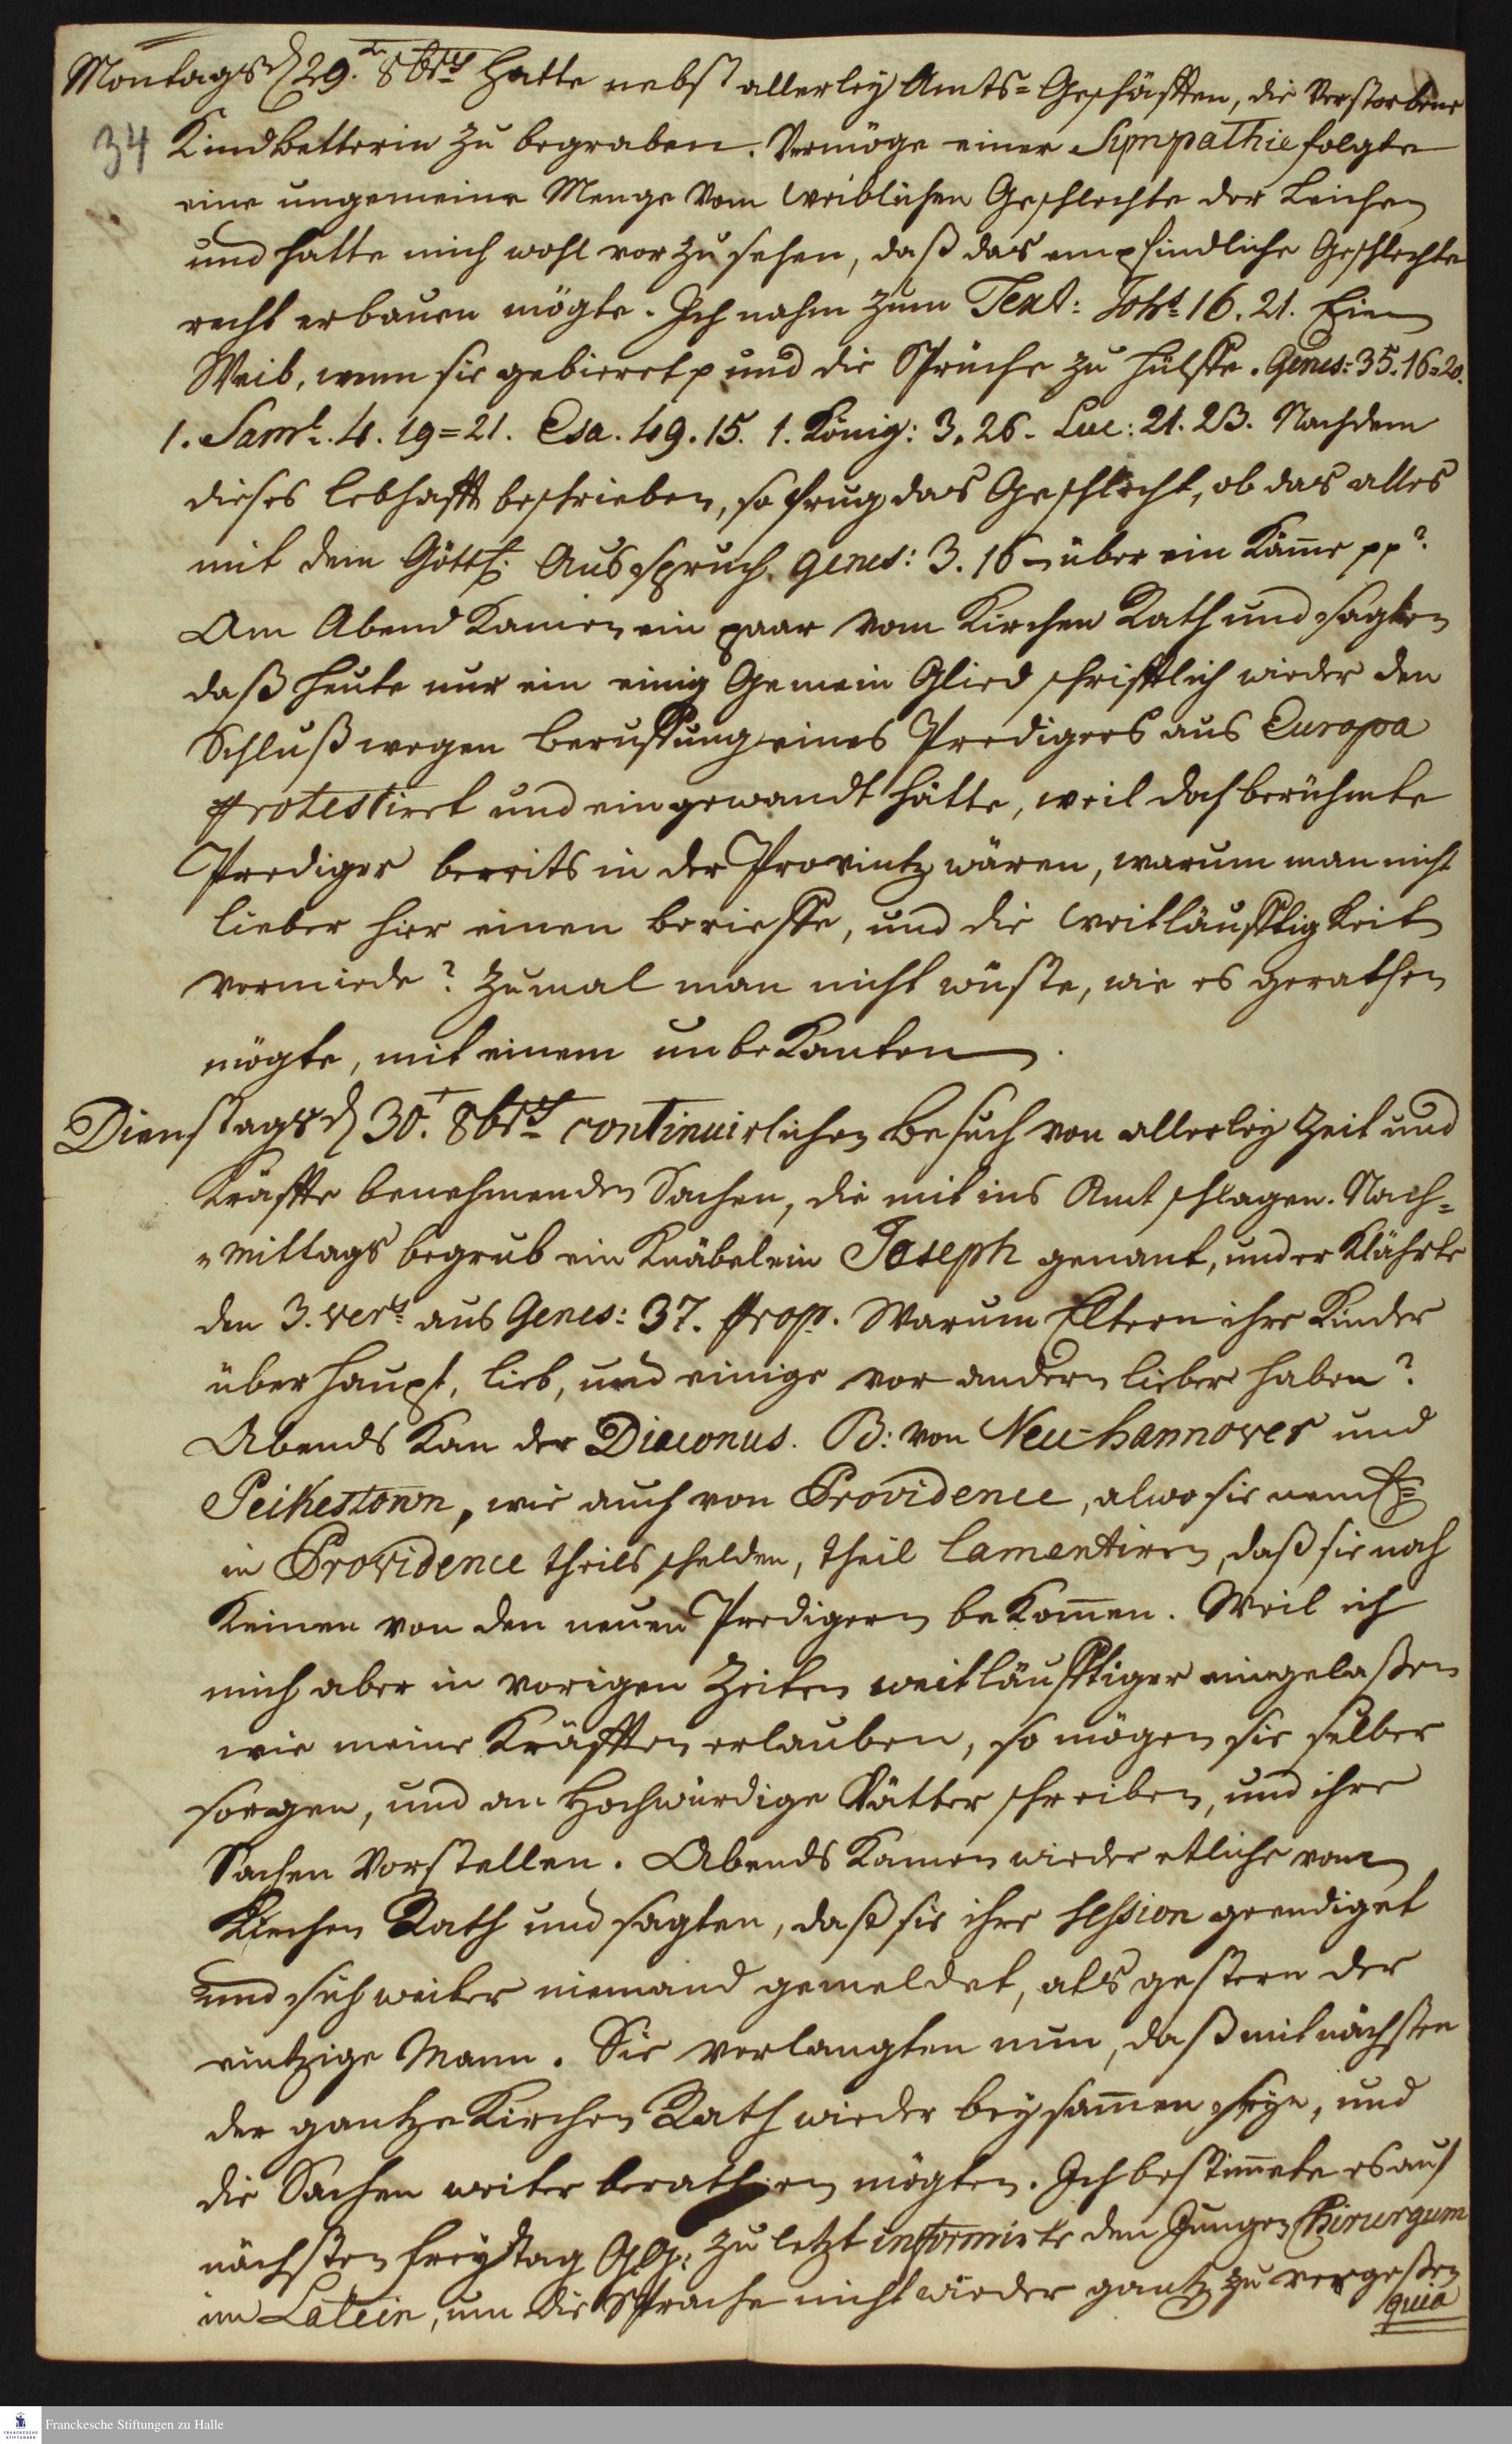 Montags d 29.t 8br: hatte nebst allerley Amts=Geschäfften, die Verstorbene
34 Kindbetterin zu begraben. Vermöge einer Sympathie folgte
eine ungemeine Menge vom weiblichen Geschlechte der Leichen
und hatte mich wohl vorzusehen, daß das empfindliche Geschlechte
recht erbauen mögte. Ich nahm zum Text: Joh: 16. 21. Ein
Weib, wenn sie gebieret p und die Sprüche zu Hülffe. Genes: 35. 16=20.
1. Saml. 4. 19=21. Esa. 49. 15. 1. König: 3. 26. Luc: 21. 23. Nachdem
dieses lebhafft beschrieben, so frug das Geschlecht, ob das alles
mit dem Göttl. Ausspruch, Genes: 3. 16 über ein käme pp?
Am Abend kamen ein paar vom Kirchen Rath und sagten
daß heute nur ein einig Gemein Glied schrifftlich wieder den
Schluß wegen Beruffung eines Predigers aus Europa
protestiret und eingewandt hätte, weil doch berühmte
Prediger bereits in der Provintz wären, warum man nicht
lieber hier einen berieffe, und die Weitläufftigkeit
vermiede? Zumal man nicht wüste, wie es gerathen
mögte, mit einem unbekanten.
Dienstags d 30.t 8br: continuirlichen Besuch von allerley Zeit und
Kräffte benehmenden Sachen, die mit ins Amt schlagen. Nach=
=mittags begrub ein Knäbelein Joseph genant, und erklährte
den 3. vers aus Genes: 37. prop. Warum Eltern ihre Kinder
überhaupt, lieb, und einige vor andern lieber haben?
Abends kam der Diaconus. B: von Neu-hannover und
Peikestown, wie auch von Providence, alwo sie neml:
in Providence theils schelden, theil lamentiren, daß sie noch
keinen von den neuen Predigern bekommen. Weil ich
mich aber in vorigen Zeiten weitläufftiger eingelaßen
wie meine Kräfften erlauben, so mögen sie selber
sorgen, und an Hochwürdige Vätter schreiben, und ihre
Sachen Vorstellen. Abends kamen wieder etliche vom
Kirchen Rath und sagten, daß sie ihre session geendiget
und sich weiter niemand gemeldet, als gestern der
eintzige Mann. Sie verlangten nun, daß mit nächsten
der gantze Kirchen Rath wieder beysammen seyn, und
die Sachen weiter berathen mögten. Ich bestimmete es auf
nächsten Freytag G.G: zu letzt informirte den Jungen Chirurgum
im Latein, um die Sprache nicht wieder gantz zu vergeßen
quia
Franckesche Stiftungen zu Halle